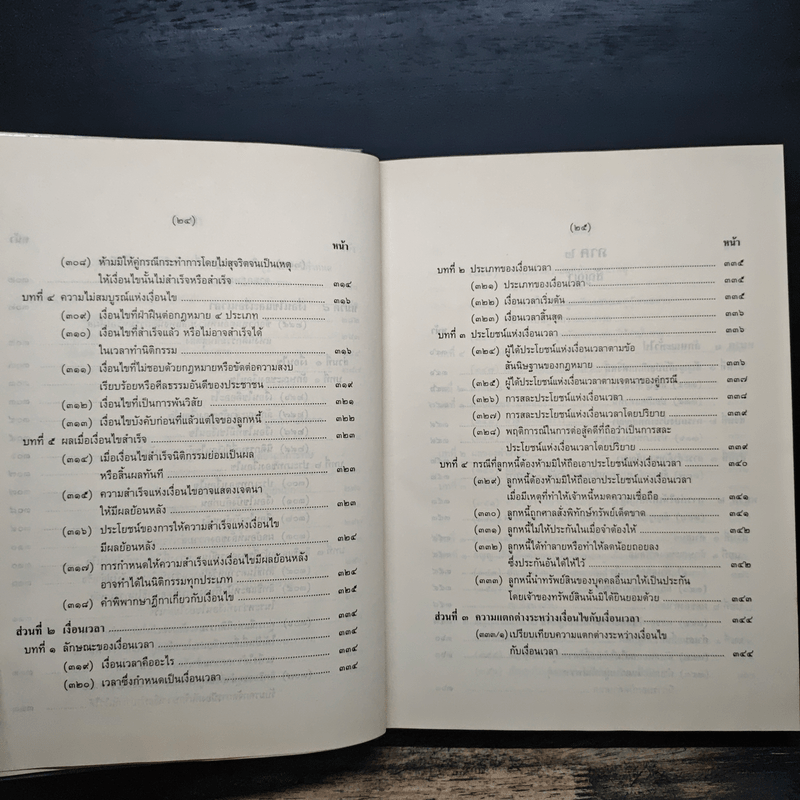 (๒๔)
หน้า
(๓๐๘) ห้ามมิให้คู่กรณีกระทำการโดยไม่สุจริตจนเป็นเหตุ
ให้เงื่อนไขนั้นไม่สำเร็จหรือสำเร็จ ๓๑๔
บทที่ ๔ ความไม่สมบูรณ์แห่งเงื่อนไข ๓๑๖
(๓๐๙) เงื่อนไขที่ฝ่าฝืนต่อกฎหมาย ๔ ประเภท
(๓๑๐) เงื่อนไขที่สำเร็จแล้ว หรือไม่อาจสำเร็จได้
ในเวลาทำนิติกรรม ๓๑๖
(๓๑๑) เงื่อนไขที่ไม่ชอบด้วยกฎหมายหรือขัดต่อความสงบ
เรียบร้อยหรือศีลธรรมอันดีของประชาชน ๓๑๙
(๓๑๒) เงื่อนไขที่เป็นการพ้นวิสัย ๓๒๑
(๓๑๓) เงื่อนไขบังคับก่อนที่แล้วแต่ใจของลูกหนี้ ๓๒๒
บทที่ ๕ ผลเมื่อเงื่อนไขสำเร็จ ๓๒๓
(๓๑๔) เมื่อเงื่อนไขสำเร็จนิติกรรมย่อมเป็นผล
หรือสิ้นผลทันที ๓๒๓
(๓๑๕) ความสำเร็จแห่งเงื่อนไขอาจแสดงเจตนา
ให้มีผลย้อนหลัง ๓๒๓
(๓๑๖) ประโยชน์ของการให้ความสำเร็จแห่งเงื่อนไข
มีผลย้อนหลัง ๓๒๔
(๓๑๗) การกำหนดให้ความสำเร็จแห่งเงื่อนไขมีผลย้อนหลัง
อาจทำได้ในนิติกรรมทุกประเภท ๓๒๔
(๓๑๘) คำพิพากษาฎีกาเกี่ยวกับเงื่อนไข ๓๒๕
ส่วนที่ ๒ เงื่อนเวลา ๓๓๔
บทที่ ๑ ลักษณะของเงื่อนเวลา ๓๓๔
(๓๑๙) เงื่อนเวลาคืออะไร ๓๓๔
(๓๒๐) เวลาซึ่งกำหนดเป็นเงื่อนเวลา ๓๓๔
(๒๕)
หน้า
บทที่ ๒ ประเภทของเงื่อนเวลา ๓๓๕
(๓๒๑) ประเภทของเงื่อนเวลา ๓๓๕
(๓๒๒) เงื่อนเวลาเริ่มต้น ๓๓๕
(๓๒๓) เงื่อนเวลาสิ้นสุด ๓๓๖
บทที่ ๓ ประโยชน์แห่งเงื่อนเวลา ๓๓๖
(๓๒๔) ผู้ได้ประโยชน์แห่งเงื่อนเวลาตามข้อ
สันนิษฐานของกฎหมาย ๓๓๖
(๓๒๕) ผู้ได้ประโยชน์แห่งเงื่อนเวลาตามเจตนาของคู่กรณี ๓๓๗
(๓๒๖) การสละประโยชน์แห่งเงื่อนเวลา ๓๓๘
(๓๒๗) การสละประโยชน์แห่งเงื่อนเวลาโดยปริยาย ๓๓๙
(๓๒๘) พฤติการณ์ในการต่อสู้คดีที่ถือว่าเป็นการสละ
ประโยชน์แห่งเงื่อนเวลาโดยปริยาย ๓๓๙
บทที่ ๔ กรณีที่ลูกหนี้ต้องห้ามมิให้ถือเอาประโยชน์แห่งเงื่อนเวลา ๓๔๐
(๓๒๙) ลูกหนี้ต้องห้ามมิให้ถือเอาประโยชน์แห่งเงื่อนเวลา
เมื่อมีเหตุที่ทำให้เจ้าหนี้หมดความเชื่อถือ ๓๔๑
(๓๓๐) ลูกหนี้ถูกศาลสั่งพิทักษ์ทรัพย์เด็ดขาด ๓๔๑
(๓๓๑) ลูกหนี้ไม่ให้ประกันในเมื่อจำต้องให้ ๓๔๒
(๓๓๒) ลูกหนี้ได้ทำลายหรือทำให้ลดน้อยถอยลง
ซึ่งประกันอันได้ให้ไว้ ๓๔๒
(๓๓๓) ลูกหนี้นำทรัพย์สินของบุคคลอื่นมาให้เป็นประกัน
โดยเจ้าของทรัพย์สินนั้นมิได้ยินยอมด้วย ๓๔๓
ส่วนที่ ๓ ความแตกต่างระหว่างเงื่อนไขกับเงื่อนเวลา ๓๔๔
(๓๓๓/๑) เปรียบเทียบความแตกต่างระหว่างเงื่อนไข
กับเงื่อนเวลา ๓๔๔